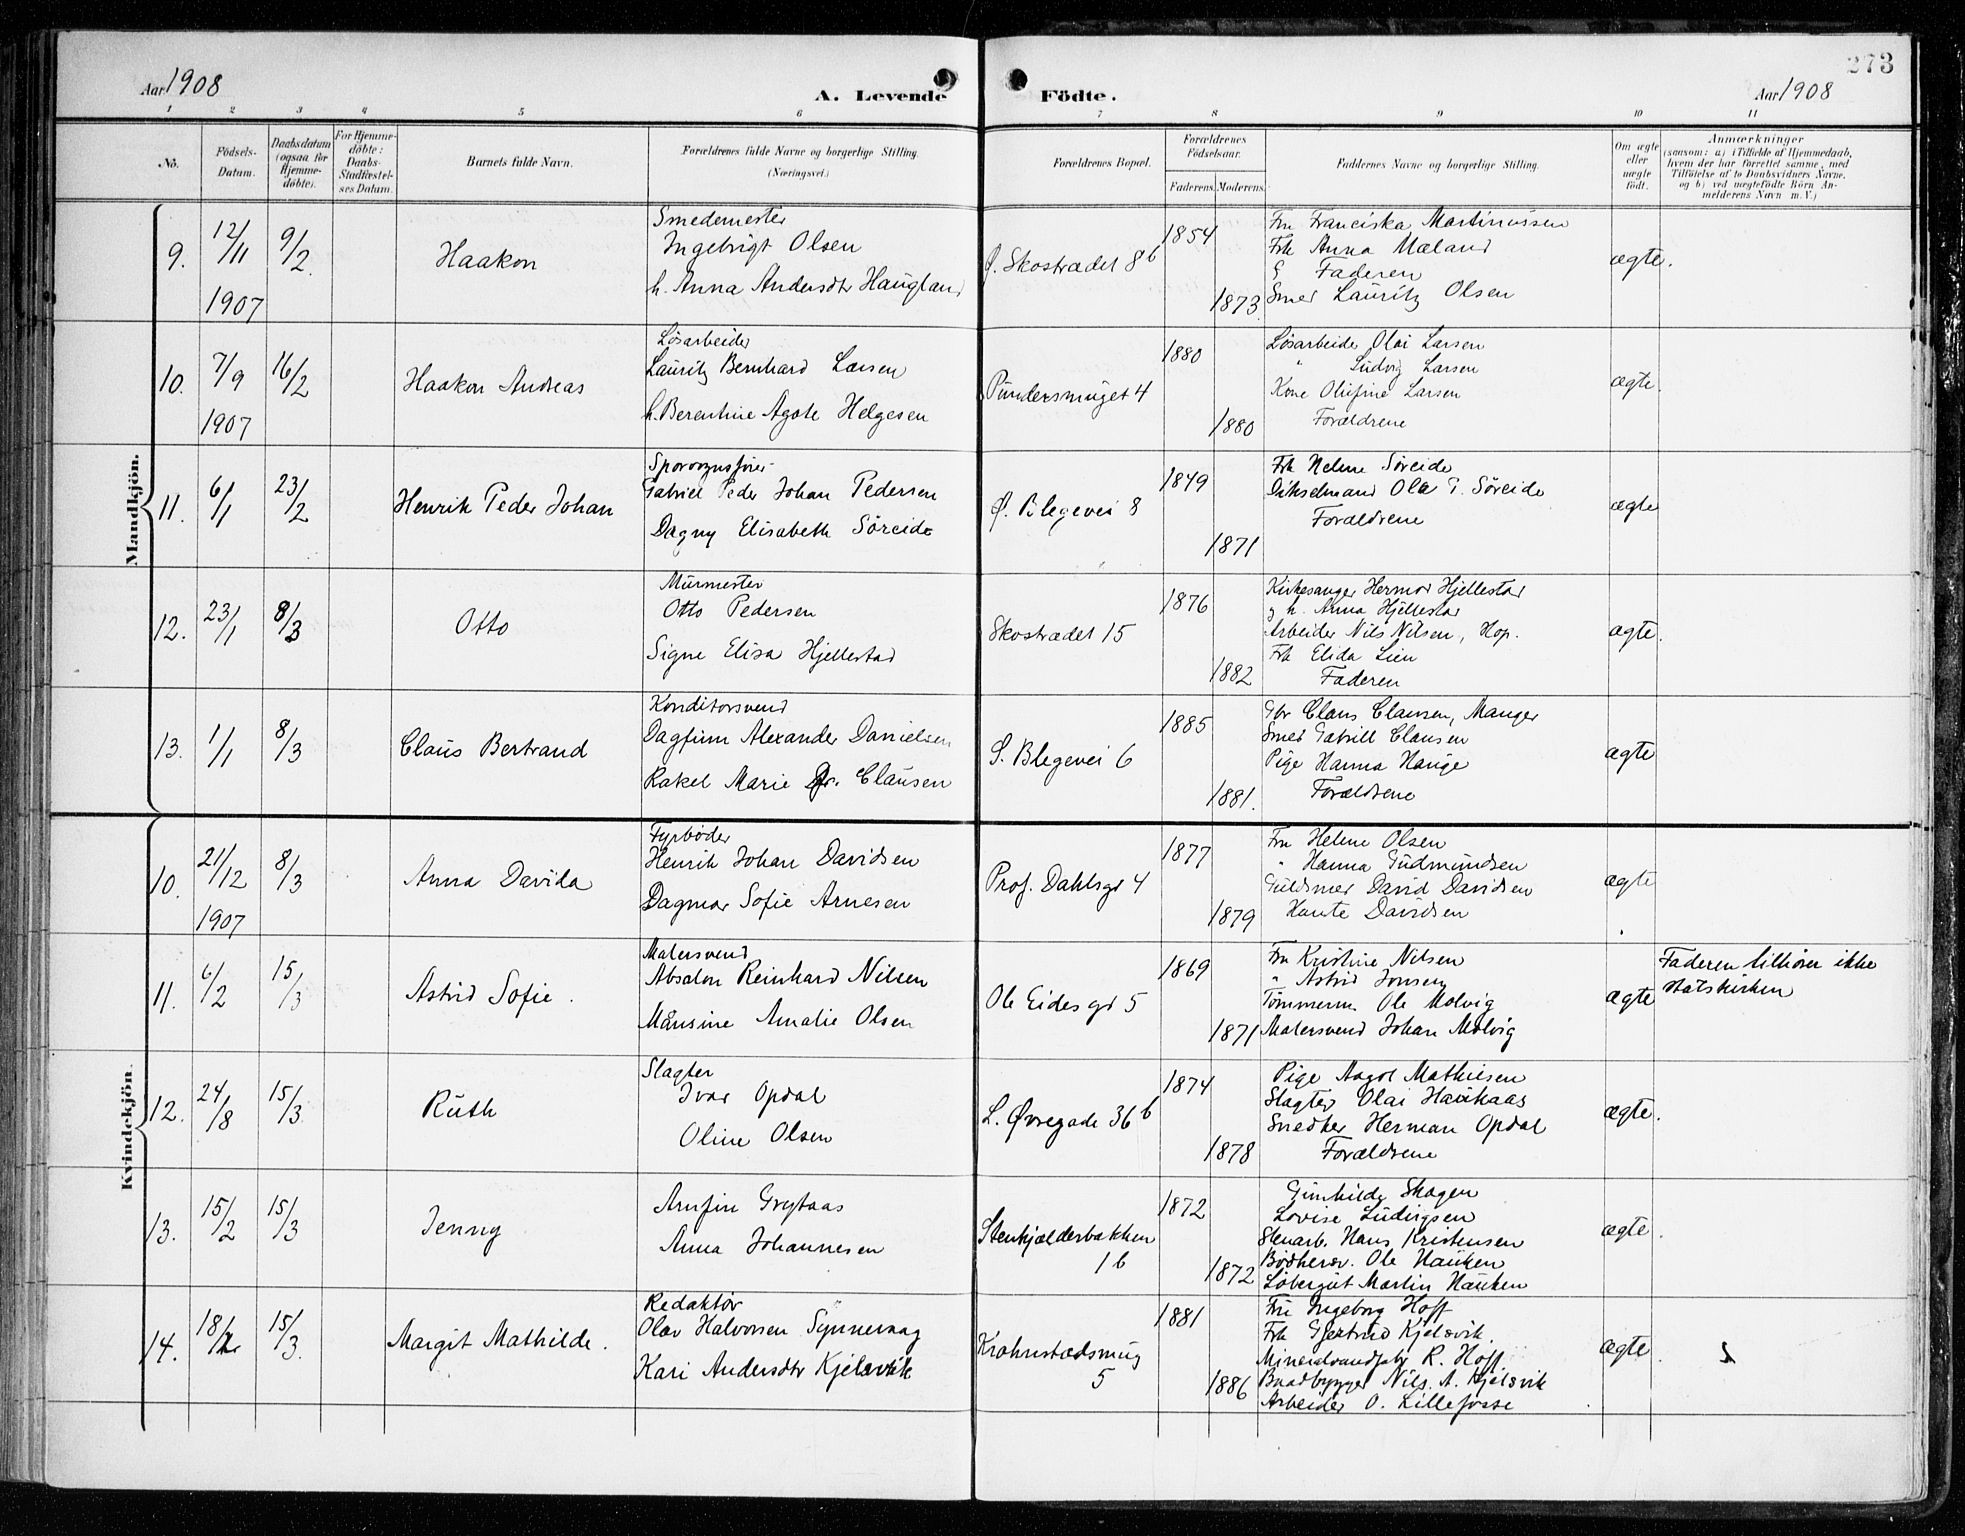 273
Aar 1908
A. Levende Födte.
Aar 1908
1 2 3 4 5 6 7 8 9 10 11
No.
Födsels-Datum.
Daabsdatum (ogsaa for Hjemmedöbte).
For Hjemmedöbte: Daabs-Stadfæstelses Datum.
Barnets fulde Navn.
Forældrenes fulde Navne og borgerlige Stilling.
(Næringsvei.)
Forældrenes Bopæl.
Forældrenes Födselsaar.
Faderens. Moderens.
Faddernes Navne og borgerlige Stilling.
Om ægte eller uægte födt.
Anmærkninger
(saasom: a) i Tilfælde af Hjemmedaab, hvem der har forrettet samme, med Tilföielse af to Daabsvidners Navne, og b) ved uægtefödte Börn Anmelderens Navn m. V.)
Mandkjön.
9. 12/11 1907 9/2 Haakon
Smedemester
Ingebrigt Olsen
h. Anna Andersdtr Haugland
Ø. Skostrædet 8b 1854 1873
Fru Franciska Martinussen
Frk Anna Mæland
Faderen
Smed Lauritz Olsen
ægte.
10. 7/9 1907 16/2 Haakon Andreas
Løsarbeider
Lauritz Bernhard Larsen
h. Berentine Agate Helgesen
Pundersmuget 4 1880 1880
Løsarbeider Olai Larsen
" Ludvig Larsen
Kone Olufine Larsen
Forældrene
ægte.
11. 6/1 23/2 Henrik Peder Johan
Sporvognsfører
Gabriel Peder Johan Pedersen
Dagny Elisabeth Söreide
Ø. Blegevei 8 1849 1871
Frk Helene Søreide
Dikselmand Ola G. Søreide
Forældrene
ægte
12. 23/1 8/3 Otto
Murmester
Otto Pedersen
Signe Elisa Hjellestad
Skostrædet 15 1876 1882
Kirkesanger Hermod Hjellestad
g h. Anna Hjellestad
Arbeider Nils Nilsen, Hop.
Frk Elida Lien
Faderen
ægte.
13. 1/1 8/3 Claus Bertrand
Konditorsvend
Dagfinn Alexander Danielsen
Rakel Marie Clausen
S. Blegevei 6 1885 1881.
Gbr Claus Clausen, Manger
Smed Gabriell Clausen
Pige Hanna Hauge
Forældrene
ægte
Kvindekjön.
10. 21/12 1907 8/3 Anna Davida
Fyrbøder
Henrik Johan Davidsen
Dagmar Sofie Arnesen
Prof. Dahlsgd 4 1877 1879
Fru Helene Olsen
" Hanna Gudmundsen
Guldsmed David Davidsen
Davidsen
ægte
11. 6/2 15/3 Astrid Sofie.
Malersvend
Absalon Reinhard Nilsen
Månsine Amalie Olsen
Ole Eidesgd 5 1869 1871
Fru Kristine Nilsen
" Astrid Jonsen
Tømmerm. Ole Molvig
Malersvend Johan Molvig
ægte
Faderen tilhører ikke
statskirken
12. 24/8 15/3 Ruth
Slagter
Ivar Opdal
Oline Olsen
L. Øvregade 36b 1874 1878
Pige Aagot Mathiesen
Slagter Olai Haukaas
Snedker Herman Opdal
Forældrene
ægte.
13. 15/2 15/3 Jenny
Arnfin Grytaas
Anna Johannesen
Stenkjelderbakken
1b 1872 1872
Gunhilde Skagen
Lovise Ludvigsen
Stenarb. Hans Kristensen
Bødkersv. Ole Hauken
Løbergut Martin Hauken
ægte.
14. 18/2 15/3 Margit Mathilde.
Redaktør
Olav Halvorsen Synnevaag
Kari Andersdtr Kjelsvik
Krohnstadsmug
5 1881 1886
Fru Ingeborg Hoff
Frk Gjertrud Kjelsvik.
Mineralvandfabr R. Hoff.
Baadbygger Nils. A. Kjelsvik
Arbeider O. Lillefosse
ægte.